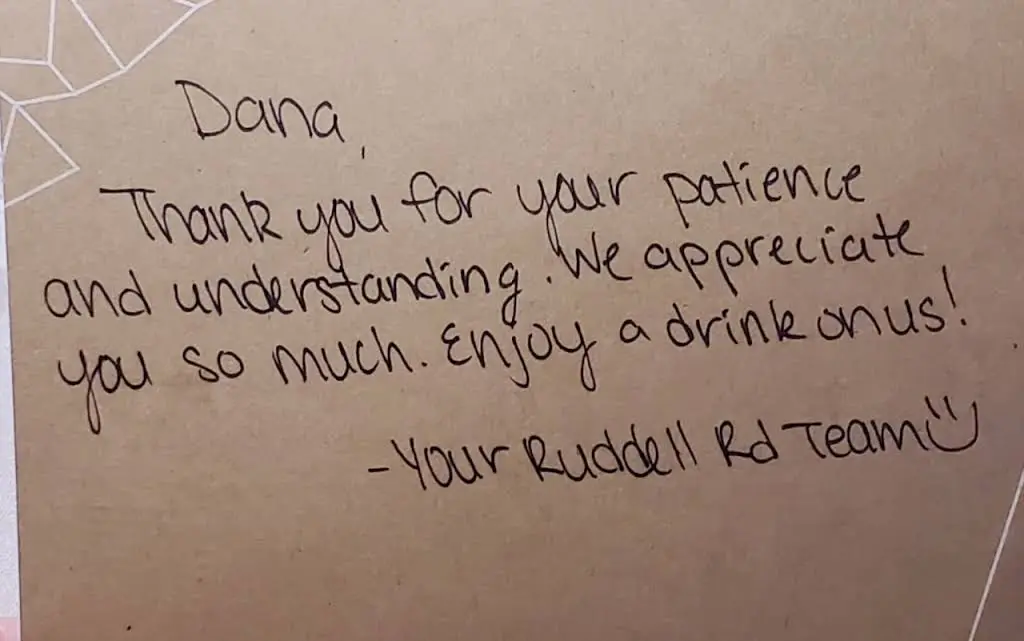 Dana,
Thank you for your patience
and understanding. We appreciate
you so much. Enjoy a drink on us!
- Your Ruddell Rd Team